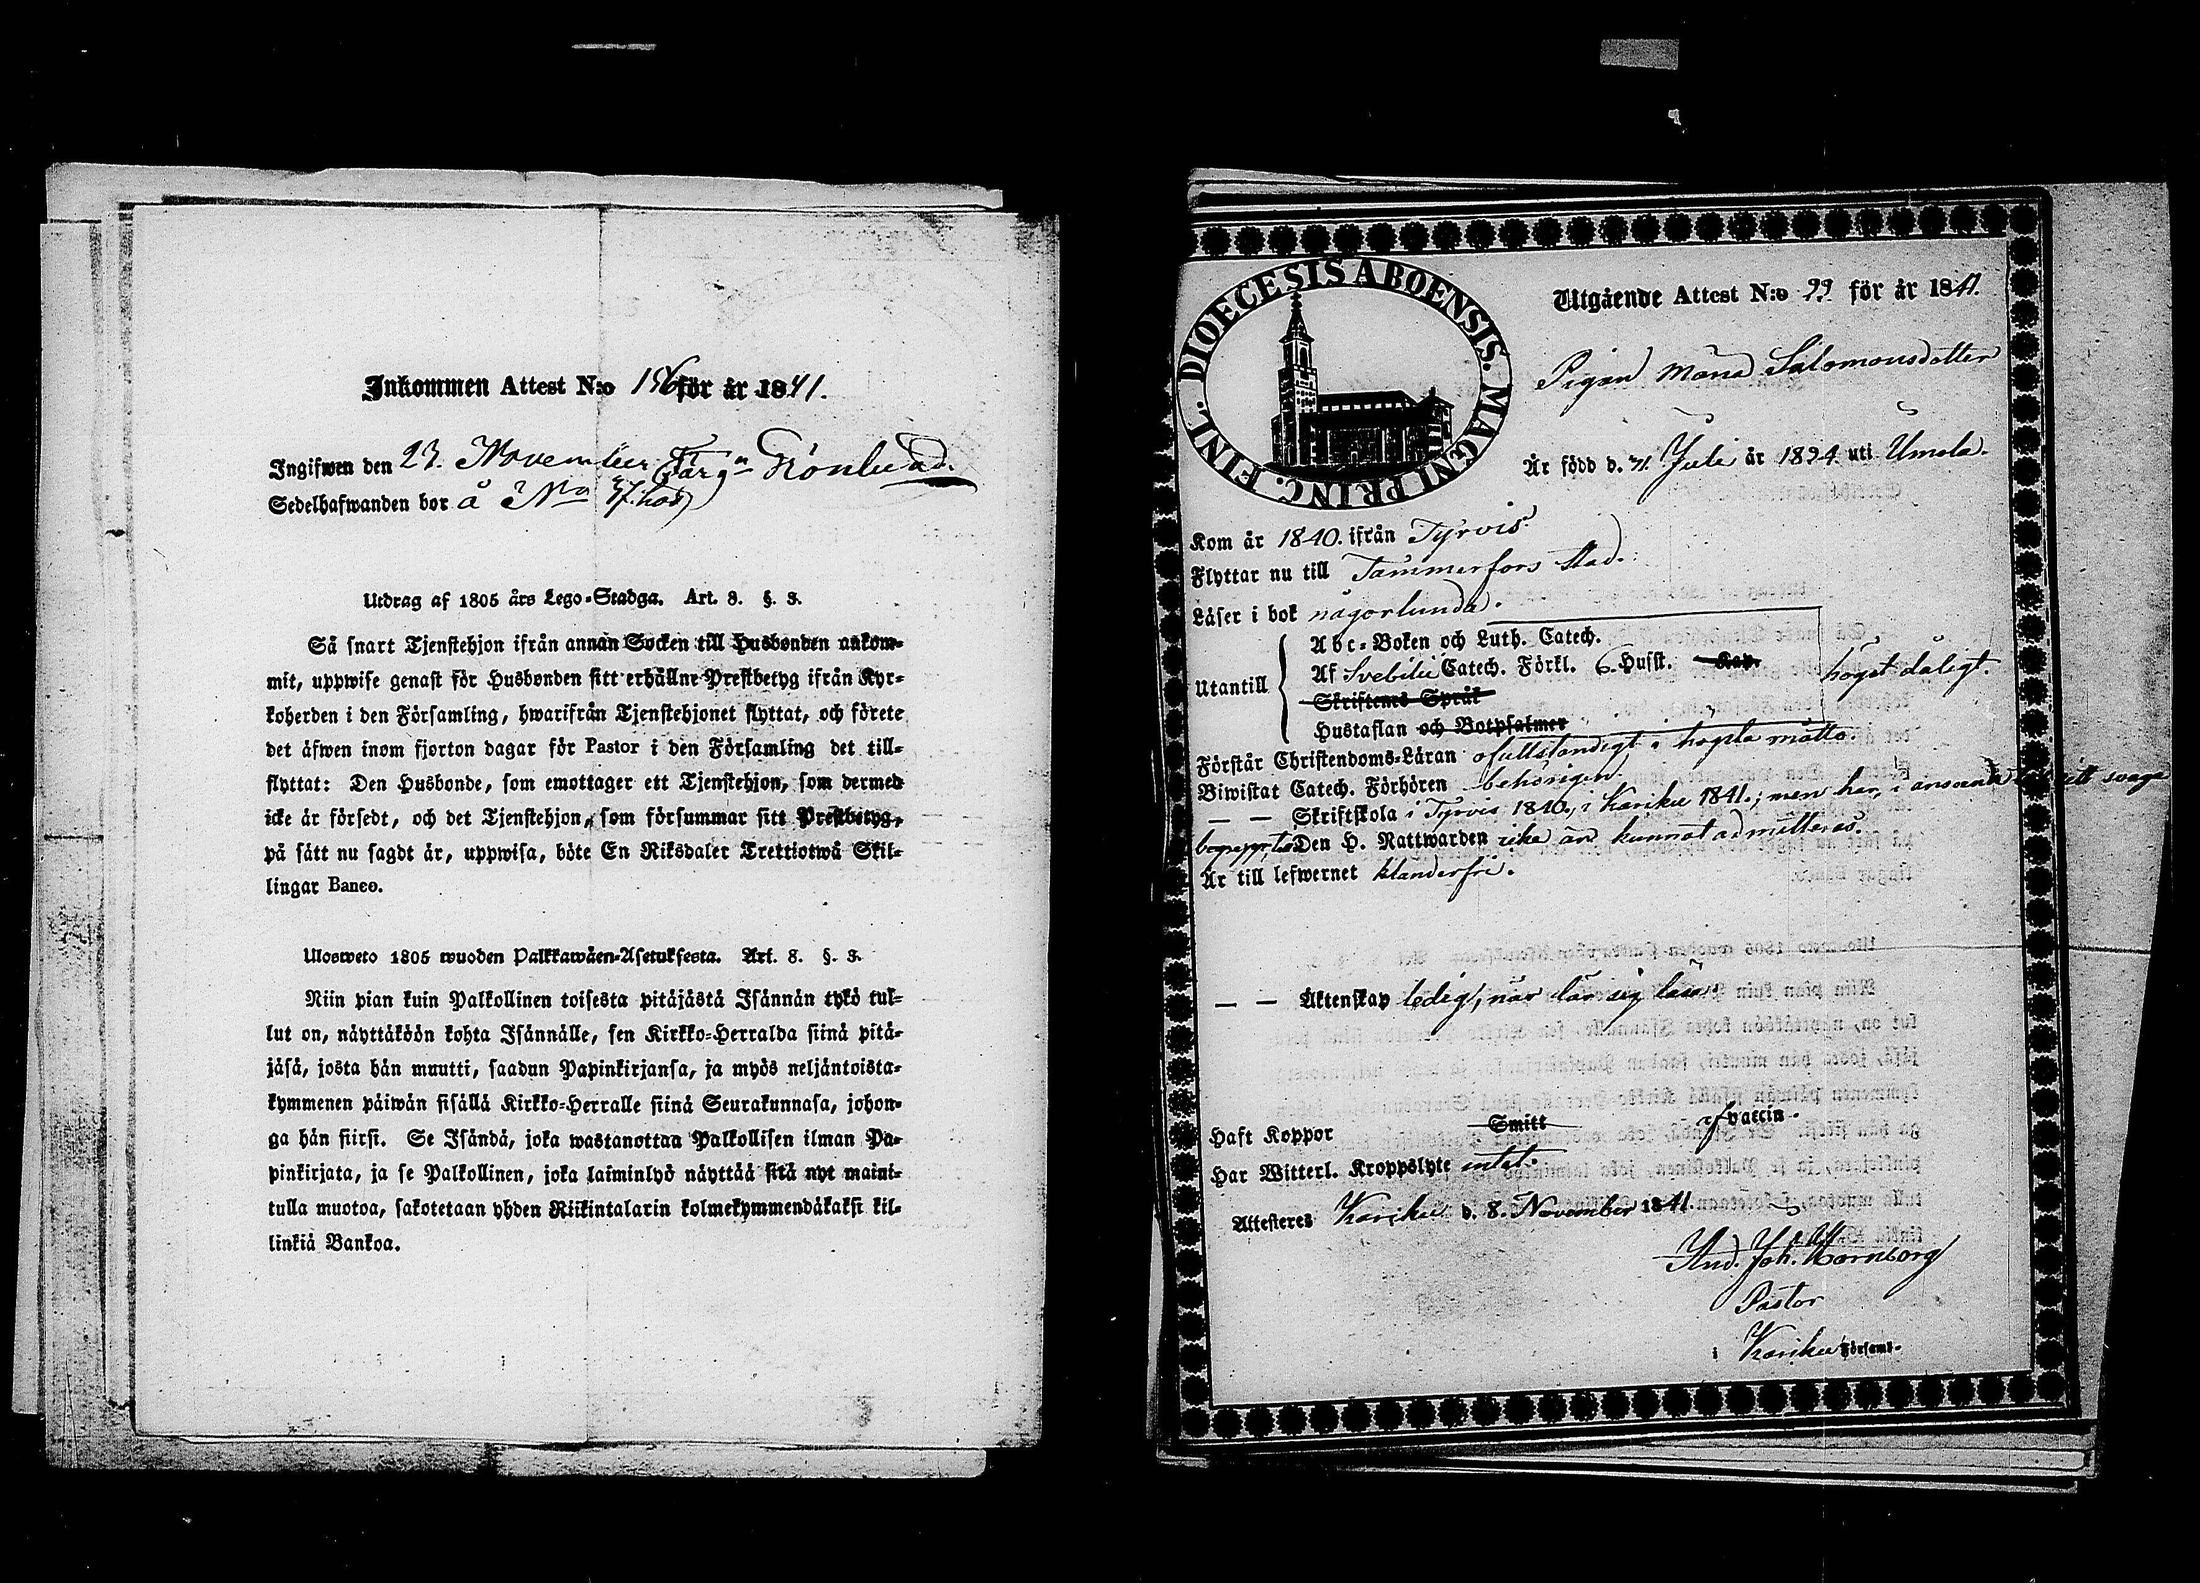 Inkommen Attest N:o 156 för år 1841.
Ingifwen den 23. November Färg Grönlund.
Sedelhafwanden bor å N:o 37. hos
Utdrag af 1805 års Lego-Stadga. Art. 8. §. 3.
Så snart Tjenstehjon ifrån annan Socken till Husbonden ankom-
mit, uppwise genast för Husbonden sitt erhållne Prestbetyg ifrån Kyr-
koherden i den Församling, hwarifrån Tjenstehjonet flyttat, och förete
det äfwen inom fjorton dagar för Pastor i den Församling det till-
flyttat: Den Husbonde, som emottager ett Tjenstehjon, som dermed
icke är försedt, och det Tjenstehjon, som försummar sitt Prestbetyg,
på sätt nu sagdt är, uppwisa, böte En Riksdaler Trettiotwå Skil-
lingar Banco.
Ulosweto 1805 wuoden Palkkawäen-Asetuksesta. Art. 8. §. 3.
Niin pian kuin Palkollinen toisesta pitäjästä Isännän tykö tul-
lut on, näyttäköön kohta Isännälle, sen Kirkko-Herralda siinä pitä-
jäsä, josta hän muutti, saadun Papinkirjansa, ja myös neljäntoista-
kymmenen päiwän sisällä Kirkko-Herralle siinä Seurakunnasa, johon-
ga hän siirsi. Se Isändä, joka wastanottaa Palkollisen ilman Pa-
pinkirjata, ja se Palkollinen, joka laiminlyö näyttää sitä nyt maini-
tulla muotoa, sakotetaan yhden Riikintalarin kolmekymmendäkaksi kil-
linkiä Bankoa.
FINL. DIOECESIS ABOENSIS. MAGNI PRINC.
Utgående Attest N:o 99. för år 1841.
Pigan Maria Salomonsdotter
Är född d. 31. Juli år 1824. uti Umola.
Kom år 1840. ifrån Tyrvis.
Flyttar nu till Tammerfors stad.
Läser i bok någorlunda.
Abc-Boken och Luth. Catech.
Utantill Af Svebilii Catech. Förkl. 6. Husst. Kap. högst dåligt.
Skriftens Språk
Hustaflan och Botpsalmer
Förstår Christendoms-Läran ofullständigt i högsta måtto.
Biwistat Catech. Förhören behörigen.
— — Skriftskola i Tyrvis 1840, i Kariku 1841.; men har, i anseende till sitt svaga
begrepp, till Den H. Nattwarden icke än kunnat admitteras.
Är till lefwernet klanderfri.
— — Äktenskap ledig, när lär sig läsa.
Haft Koppor Smitt vaccin.
Har Witterl. Kroppslyte intet.
Attesteres Kariku d. 8. November 1841.
And. Joh. Hornborg
Pastor
i Kariku Församl.